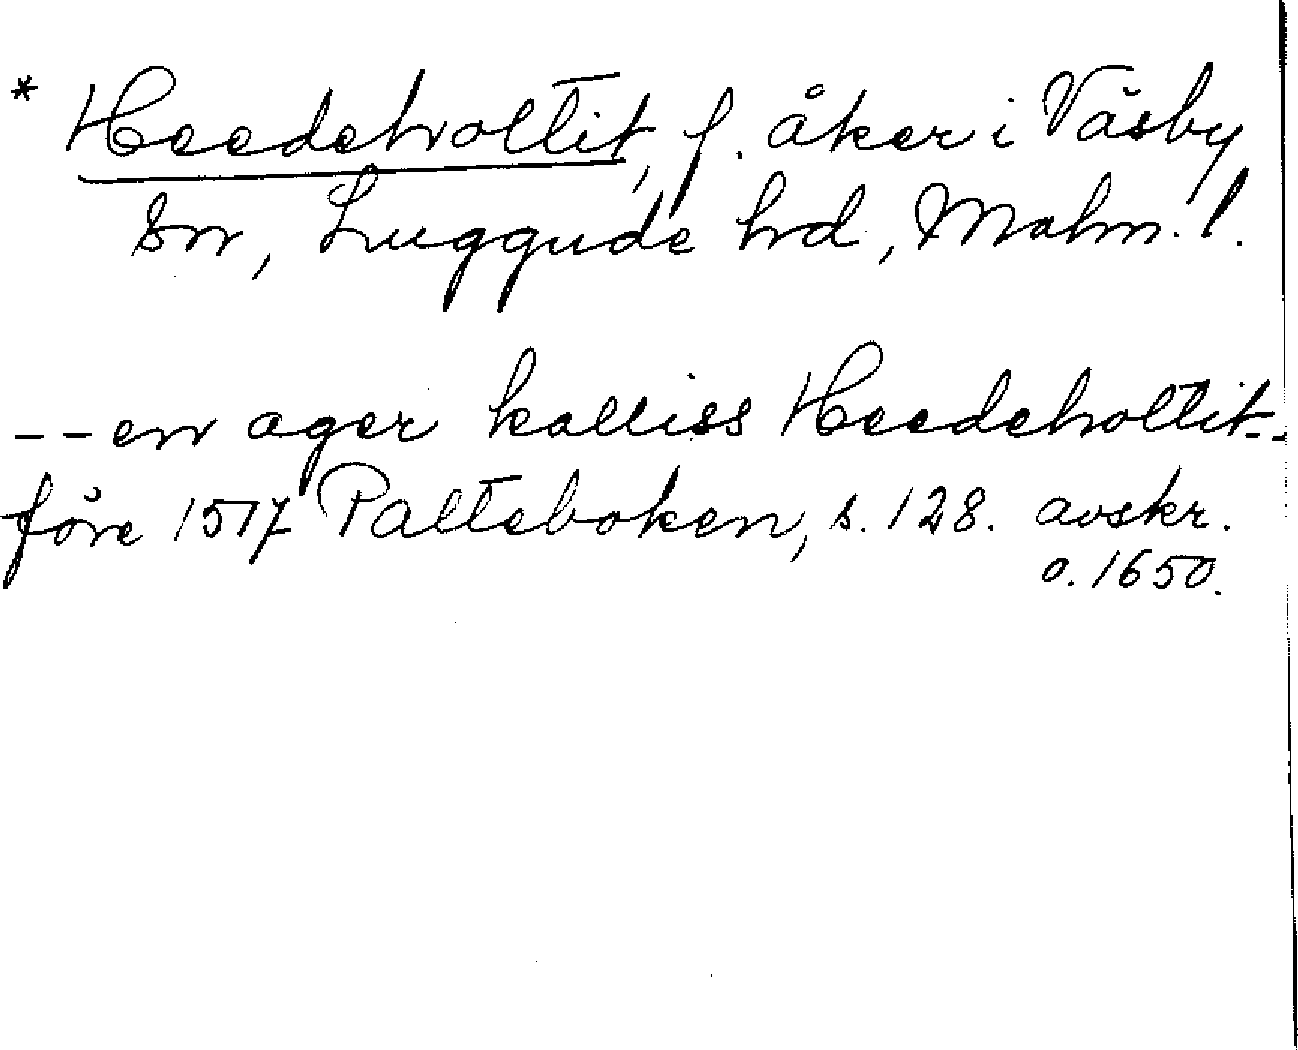 * Heedehvolltit, f. åker i Väsby
sn, Luggude hd, Malm. l.
-- en ager kalliss Heedeholltit--
före 1517 Palteboken, s. 128. avskr.
o. 1650.